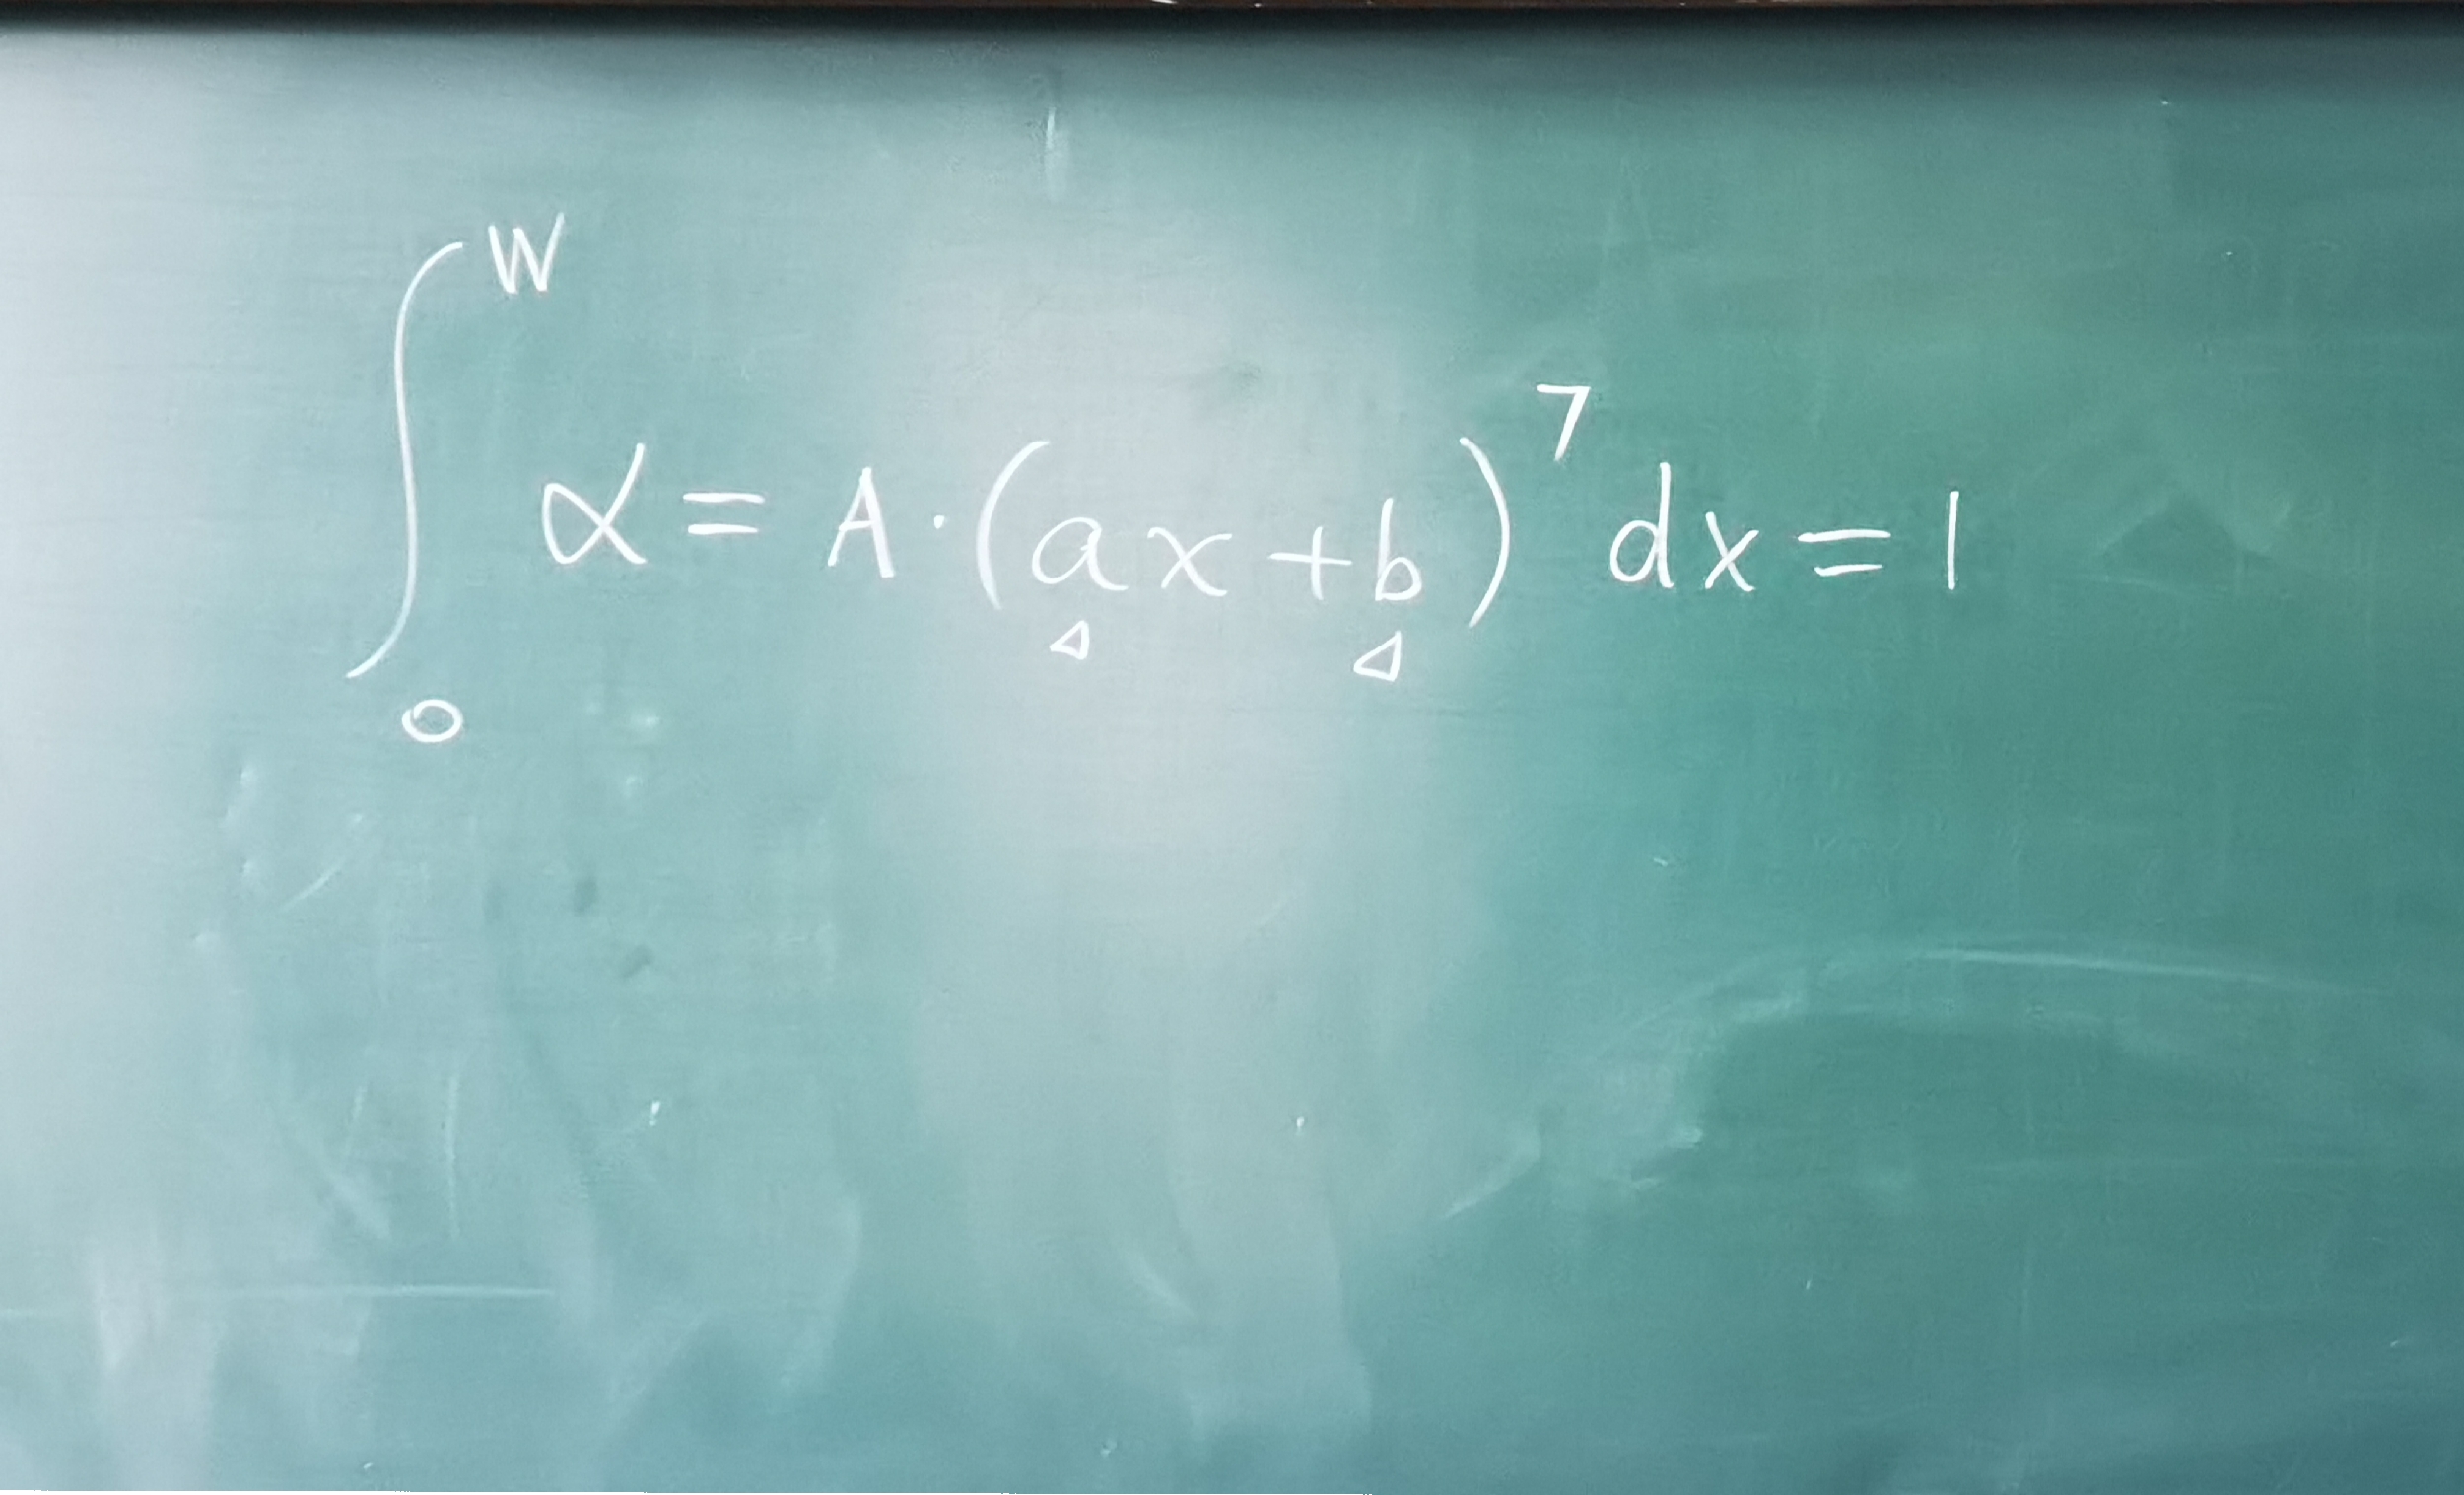 ∫₀ᵂ α = A · (ax + b)⁷ dx = 1
△ △